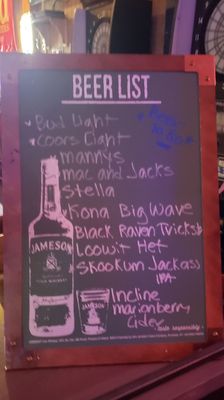 BEER LIST
Bud Light
Coors Light
mannys
mac and Jacks
Stella
Kona Big Wave
Black Raven Tricks
Loowit Hef
Skookum Jackass
IPA
Incline
marionberry
Cider
JAMESON
JAMESON
taste responsibly